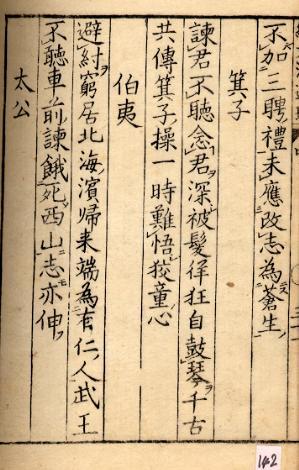 不加三聘禮未應改志為蒼生
箕子
諫君不聽念君深被髮佯狂自鼓琴千古
共傳箕子操一時難悟狡童心
伯夷
避紂窮居北海濱歸来端為有仁人武王
不聽車前諫餓死西山志亦伸
太公
142